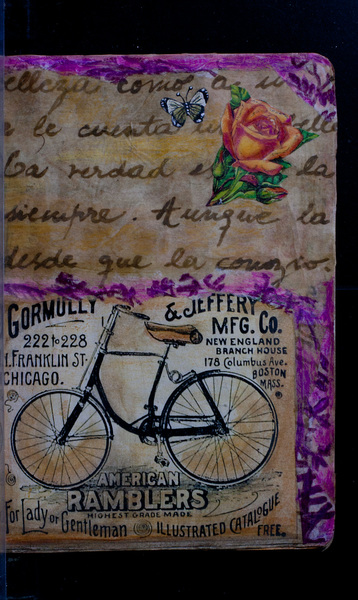 belleza como a
a le cuenta
La verdad es la
siempre. Aunque la
desde que la conozco.
GORMULLY & JEFFERY
MFG. CO.
222 to 228
FRANKLIN ST.
CHICAGO.
NEW ENGLAND
BRANCH HOUSE
178 Columbus Ave.
BOSTON
MASS.
AMERICAN
RAMBLERS
HIGHEST GRADE MADE
For Lady or Gentleman ILLUSTRATED CATALOGUE
FREE.